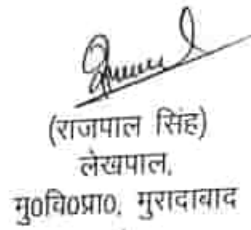 (राजपाल सिंह)
लेखपाल,
मु०वि०प्रा०, मुरादाबाद